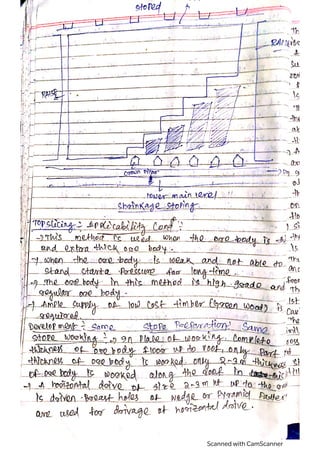 stoped
RAISE
RAISE
crown Pillar
lower main level
shrinkage stoping.
Top slicing :- Applicability Cond :-
→ This method is used when the ore body is
and extra thick ore body.
→ when the ore body is weak and not able to
stand strata Pressure for long-time.
→ The ore body in this method is high grade and
regular ore body.
→ Ample supply of low cost timber (green wood) is
required.
Development :- same Stope Preparation :- Same
Stope working :- In Place of working, complete
thickness of ore body floor to roof, only Part
thickness of ore body is worked only 2-3m thickness
of ore body is worked along the roof in
→ A horizontal drive of size 2-3m up to the
is driven. Breast holes of wedge or Pyramid Pattern
are used for drivage of horizontal drive.
Scanned with CamScanner